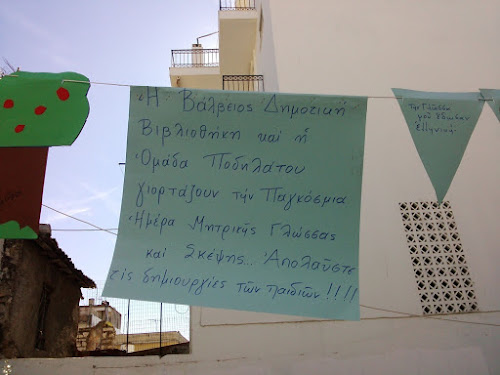 Ἡ Βάλβειος Δημοτική
Βιβλιοθήκη καί ἡ
Ὁμάδα Ποδηλάτου
γιορτάζουν τήν Παγκόσμια
Ἡμέρα Μητρικῆς Γλώσσας
καί Σκέψης... Ἀπολαῦστε
τίς δημιουργίες τῶν παιδιῶν!!!!
τήν Γλῶσσα
μοῦ ἔδωσαν
ἑλληνική.